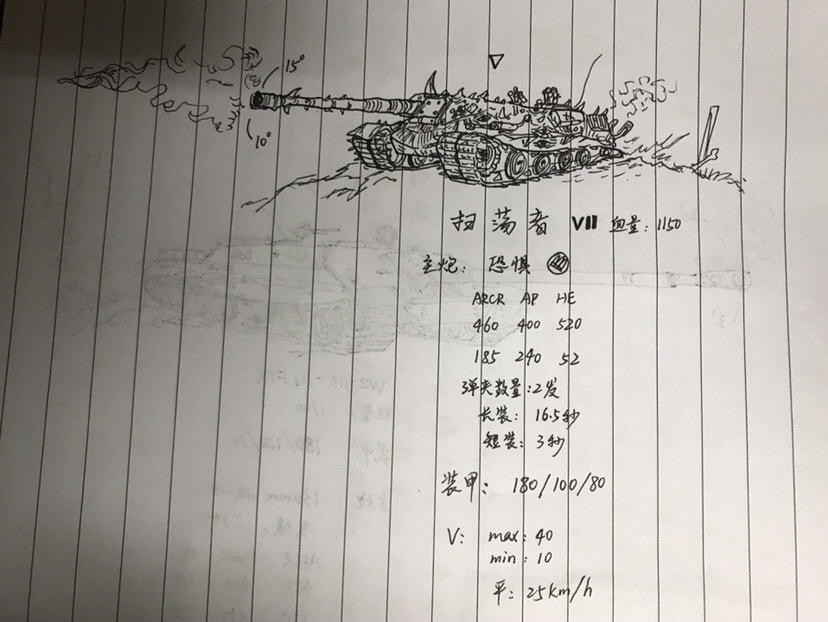 15°
10°
扫荡者 VII 血量：1150
主炮：恐惧
ARCR AP HE
460 400 520
185 240 52
弹夹数量：2发
长装：16.5秒
短装：3秒
装甲：180/100/80
V： max：40
min：10
平：25km/h